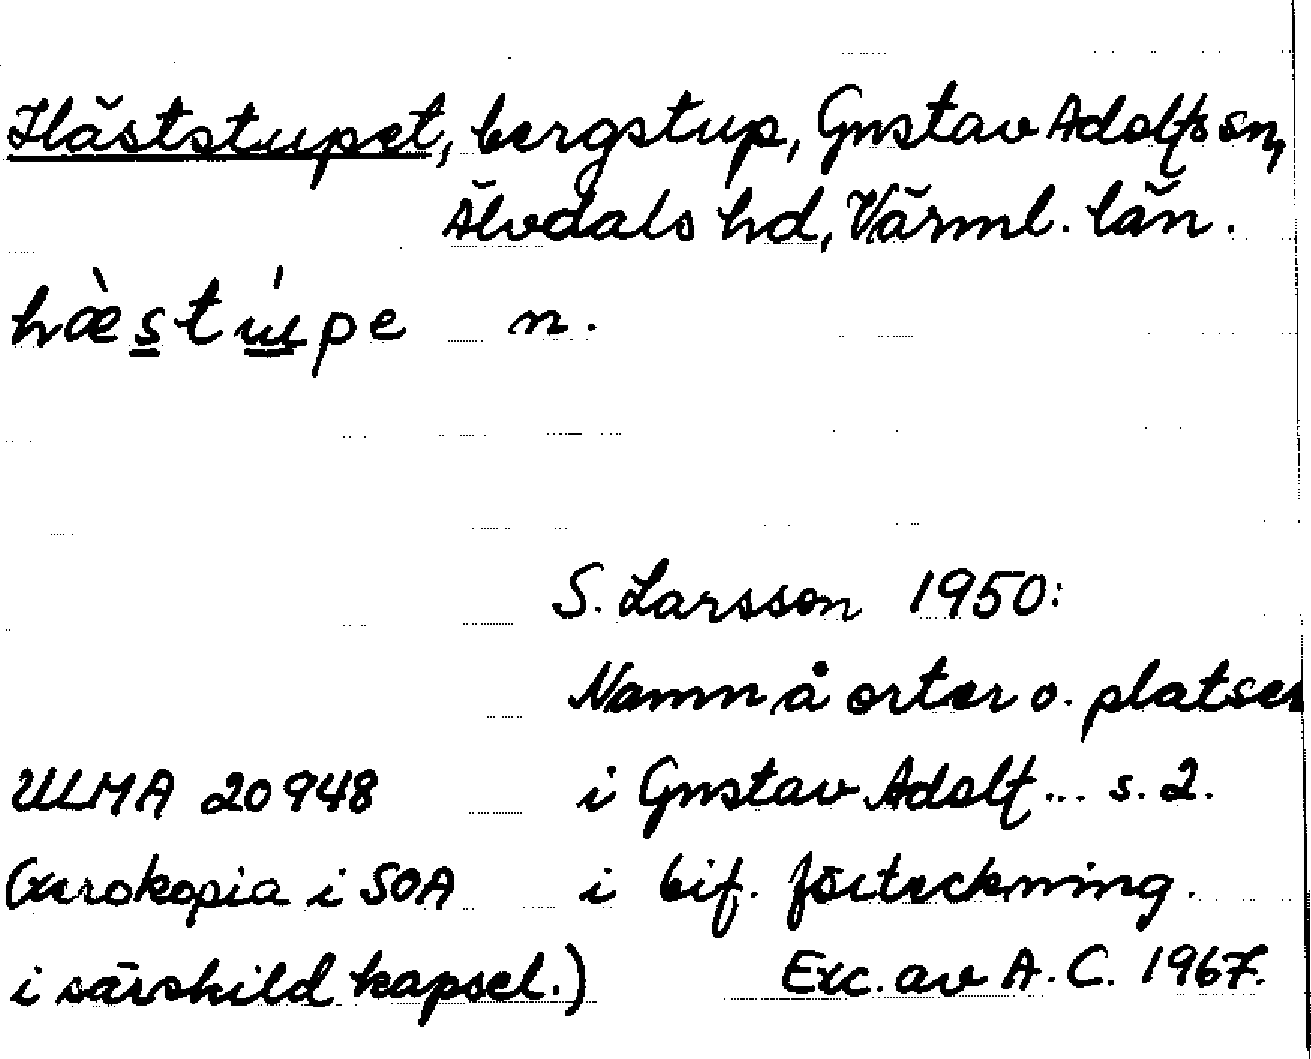 Häststupet, bergstup, Gustav Adolfs sn,
Älvdals hd, Värml. län.
hæ̀s̲tɯ̲́pe n.
S. Larsson 1950:
Namn å orter o. platser
ULMA 20948 i Gustav Adolf... s. 2.
(Xerokopia i SOA i bif. förteckning.
i särskild kapsel.) Exc. av A. C. 1967.